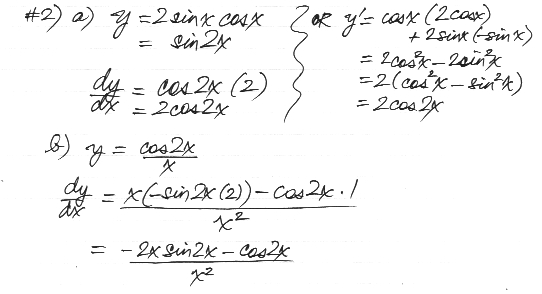 #2) a) y = 2 sinx cosx
= sin2x
dy/dx = cos2x (2)
= 2cos2x
OR y' = cosx (2cosx)
+ 2sinx (-sinx)
= 2cos²x - 2sin²x
= 2(cos²x - sin²x)
= 2cos2x
b) y = cos2x/x
dy/dx = x(-sin2x(2)) - cos2x · 1/x²
= -2x sin2x - cos2x/x²